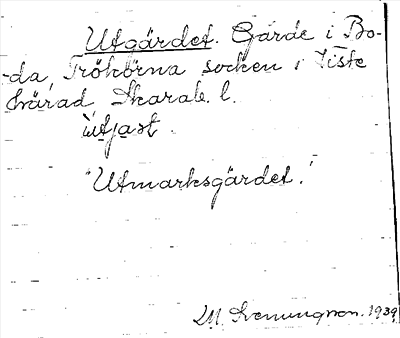 Utgärdet. Gärde i Bo-
da, Trökörna socken i Viste
härad, Skarab. l.
utjast.
"Utmarksgärdet."
M. Svenungson. 1939